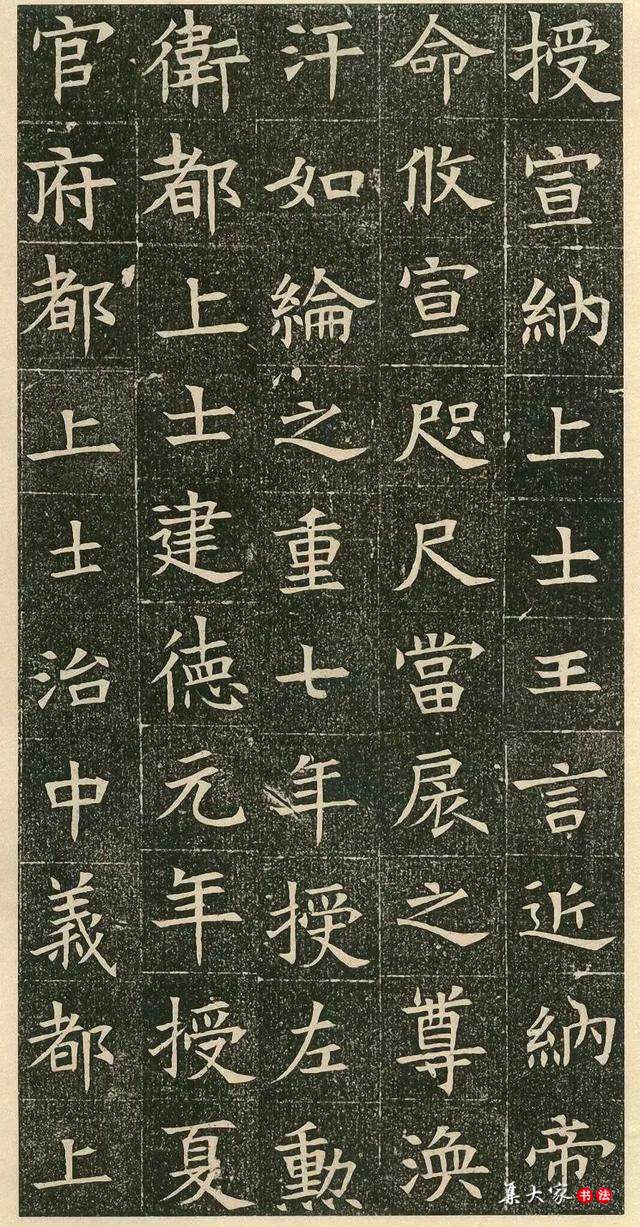 授宣納上士王言近納帝
命攸宣咫尺當扆之尊渙
汗如綸之重七年授左勲
衛都上士建德元年授夏
官府都上士治中義都上
集大家书法